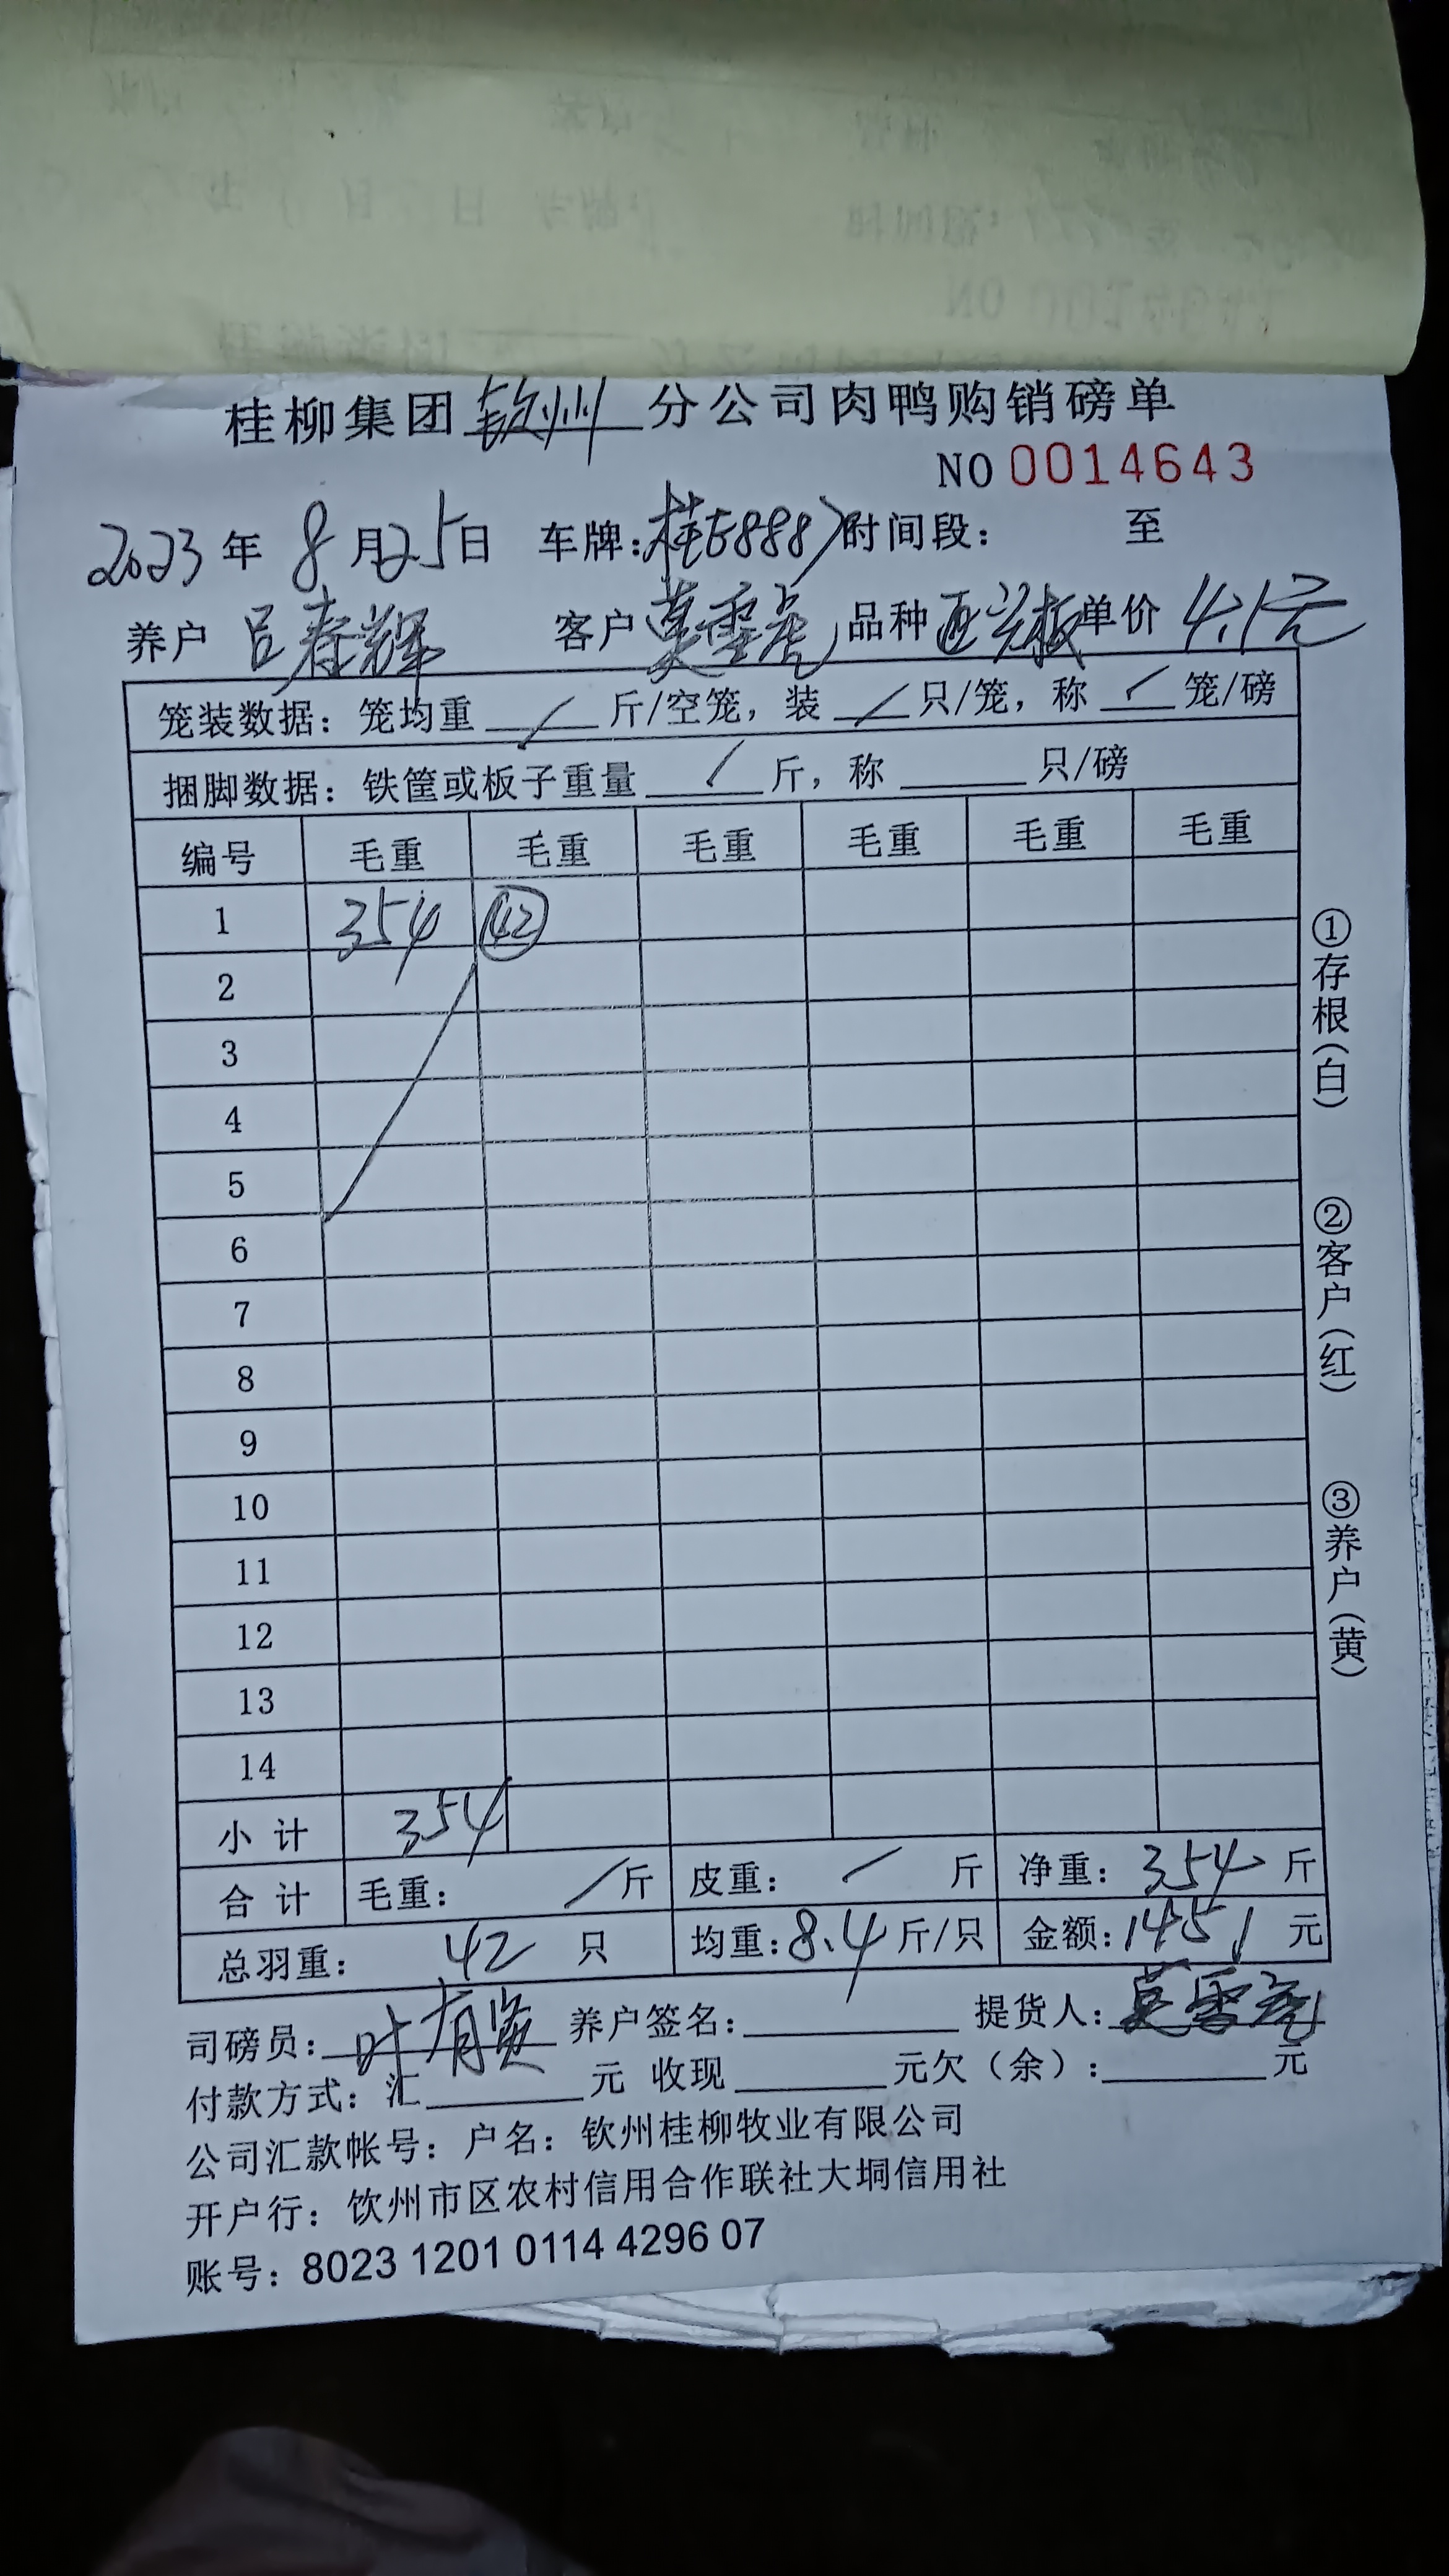 桂柳集团 钦州 分公司肉鸭购销磅单
NO 0014643
2023 年 8 月 25 日 车牌: 时间段: 至
养户 吕春辉 客户 莫雪亮 品种 单价 4.1元
笼装数据: 笼均重 / 斤/空笼, 装 / 只/笼, 称 / 笼/磅
捆脚数据: 铁筐或板子重量 / 斤, 称 只/磅
编号 毛重 毛重 毛重 毛重 毛重 毛重
1 354 42
2
3
4
5
6
7
8
9
10
11
12
13
14
小 计 354
合 计 毛重: / 斤 皮重: / 斤 净重: 354 斤
总羽重: 42 只 均重: 8.4 斤/只 金额: 1451 元
司磅员: 叶有 养户签名: 提货人: 莫雪亮
付款方式: 汇 元 收现 元欠（余）: 元
公司汇款帐号: 户名: 钦州桂柳牧业有限公司
开户行: 钦州市区农村信用合作联社大垌信用社
账号: 8023 1201 0114 4296 07
①存根（白）
②客户（红）
③养户（黄）